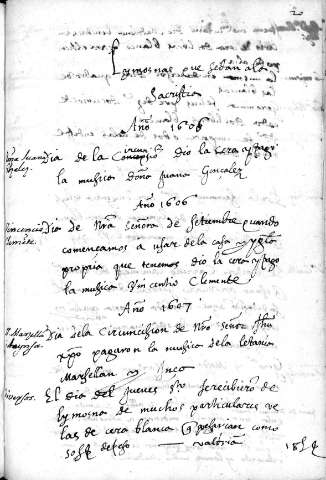 2
Lymosnas que se dan a la
Sacristia
Año 1606
Dia de la Concepsio dio la cera y pago
la musica doña Juana Gonzalez
Año 1606
Vincencio Clemente
Dia de Nra Señora de Setiembre quando
comencamos a usar de la casa y yglia
propria que tenemos dio la cera y pago
la musica Vincentio Clemente
Año 1607
Dia de la Circuncision de Nro Señor Jhu
xpo pagaron la musica de la letania
Marsellan y
Diversos.
El dia del jueves sto se recibiero de
lymosna de muchos particulares ve
las de cera blanca q pesarian como
valdria